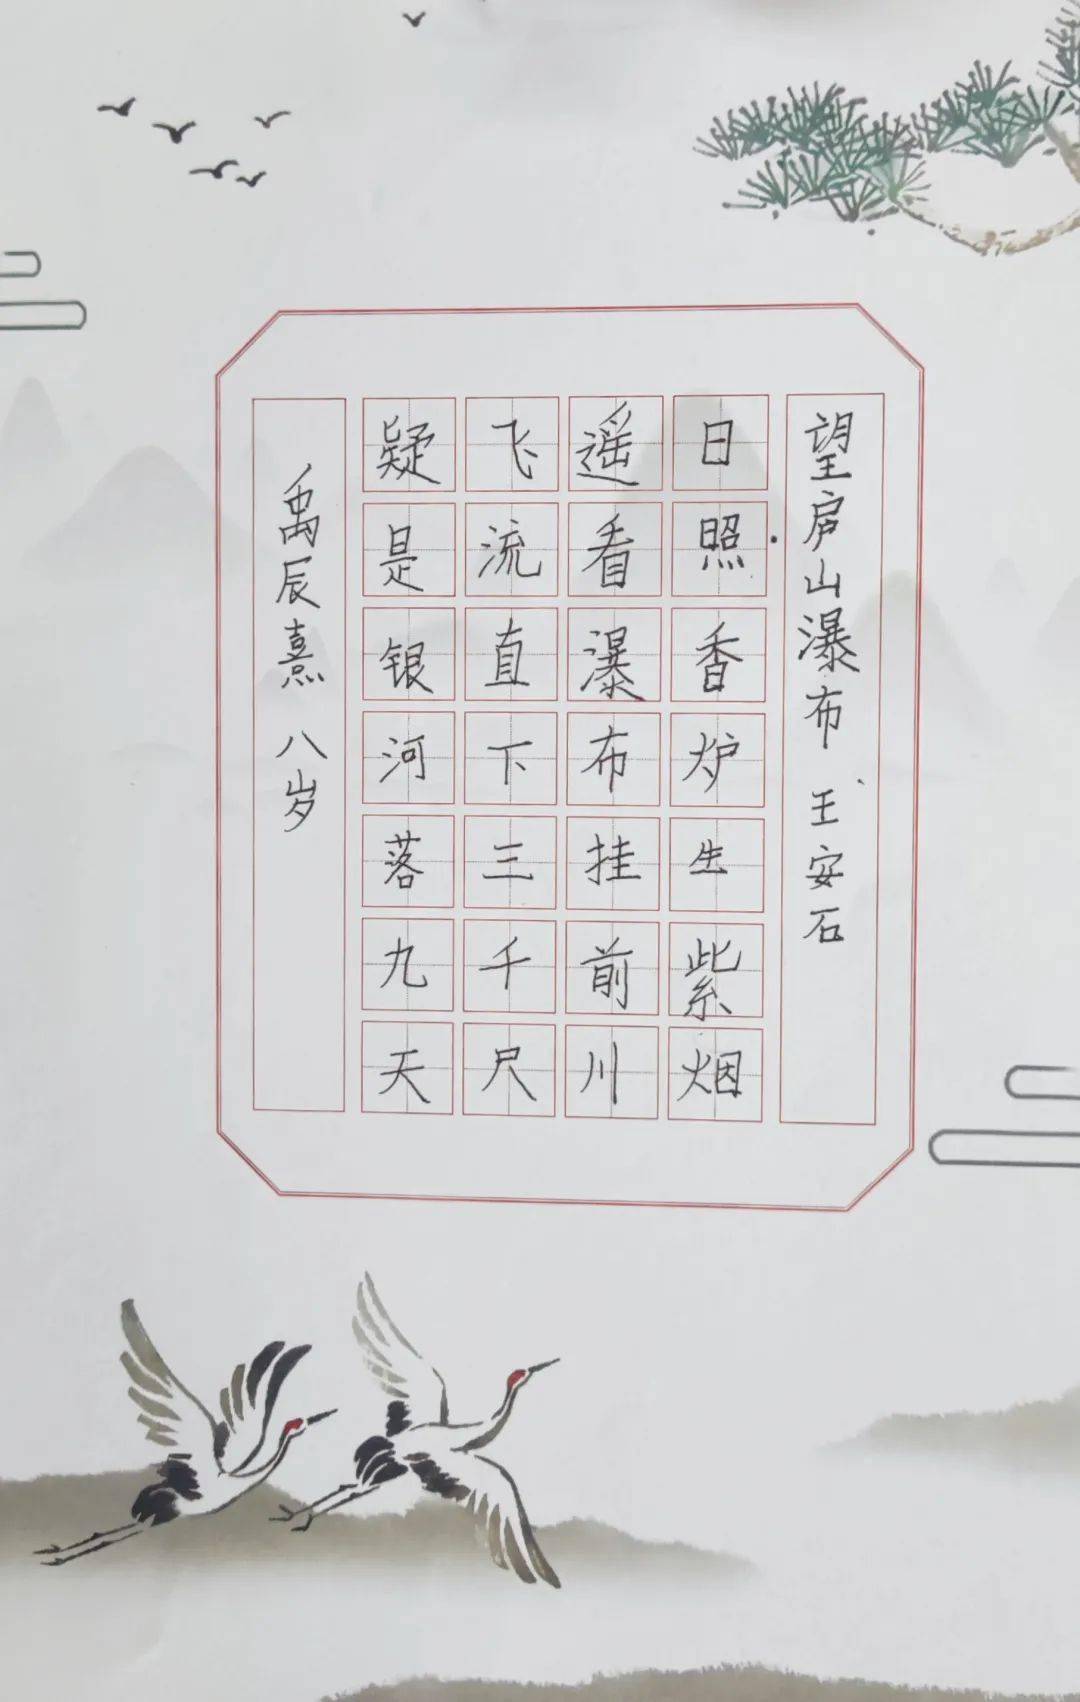 望庐山瀑布 王安石
日照香炉生紫烟
遥看瀑布挂前川
飞流直下三千尺
疑是银河落九天
禹辰熹 八岁